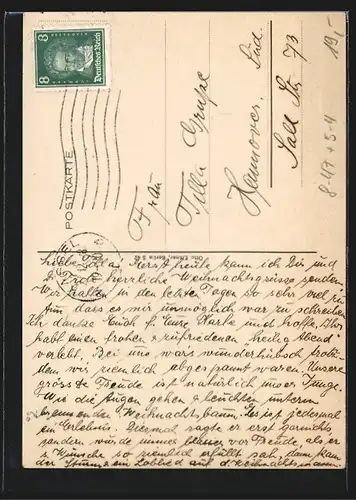 8 8
Deutsches Reich
POSTKARTE
Frau
Tilla Grupe
Hannover. Süd
Sall Str 73
19,-
8-47+5-4
Otto Elsner, Berlin S 42
Liebe Tilla! Kerst heute kann ich Dir und
Ernst herrliche Weihnachtsgrüsse senden.
Wir hatten in den letzten Tagen so sehr viel zu
tun dass es mir unmöglich war zu schreiben
Ich danke Euch f. Eure Karte und hoffe, Ihr
habt einen frohen & zufriedenen heilig Abend
verlebt. Bei uns wars wunderhübsch trotz-
dem wir ziemlich abgespannt waren. Unsere
grösste Freude ist natürlich unser Junge.
Wie die Augen gehen & leuchten unterm
brennenden Weihnachtsbaum. Es ist jedesmal
ein Erlebnis. Diesmal sagte er erst garnichts
sondern wurde immer blasser vor Freude, als er
s. Wünsche so ziemlich erfüllt sah, dann kam
der Sturm & ein Loblied auf d. Weihnachtsmann.